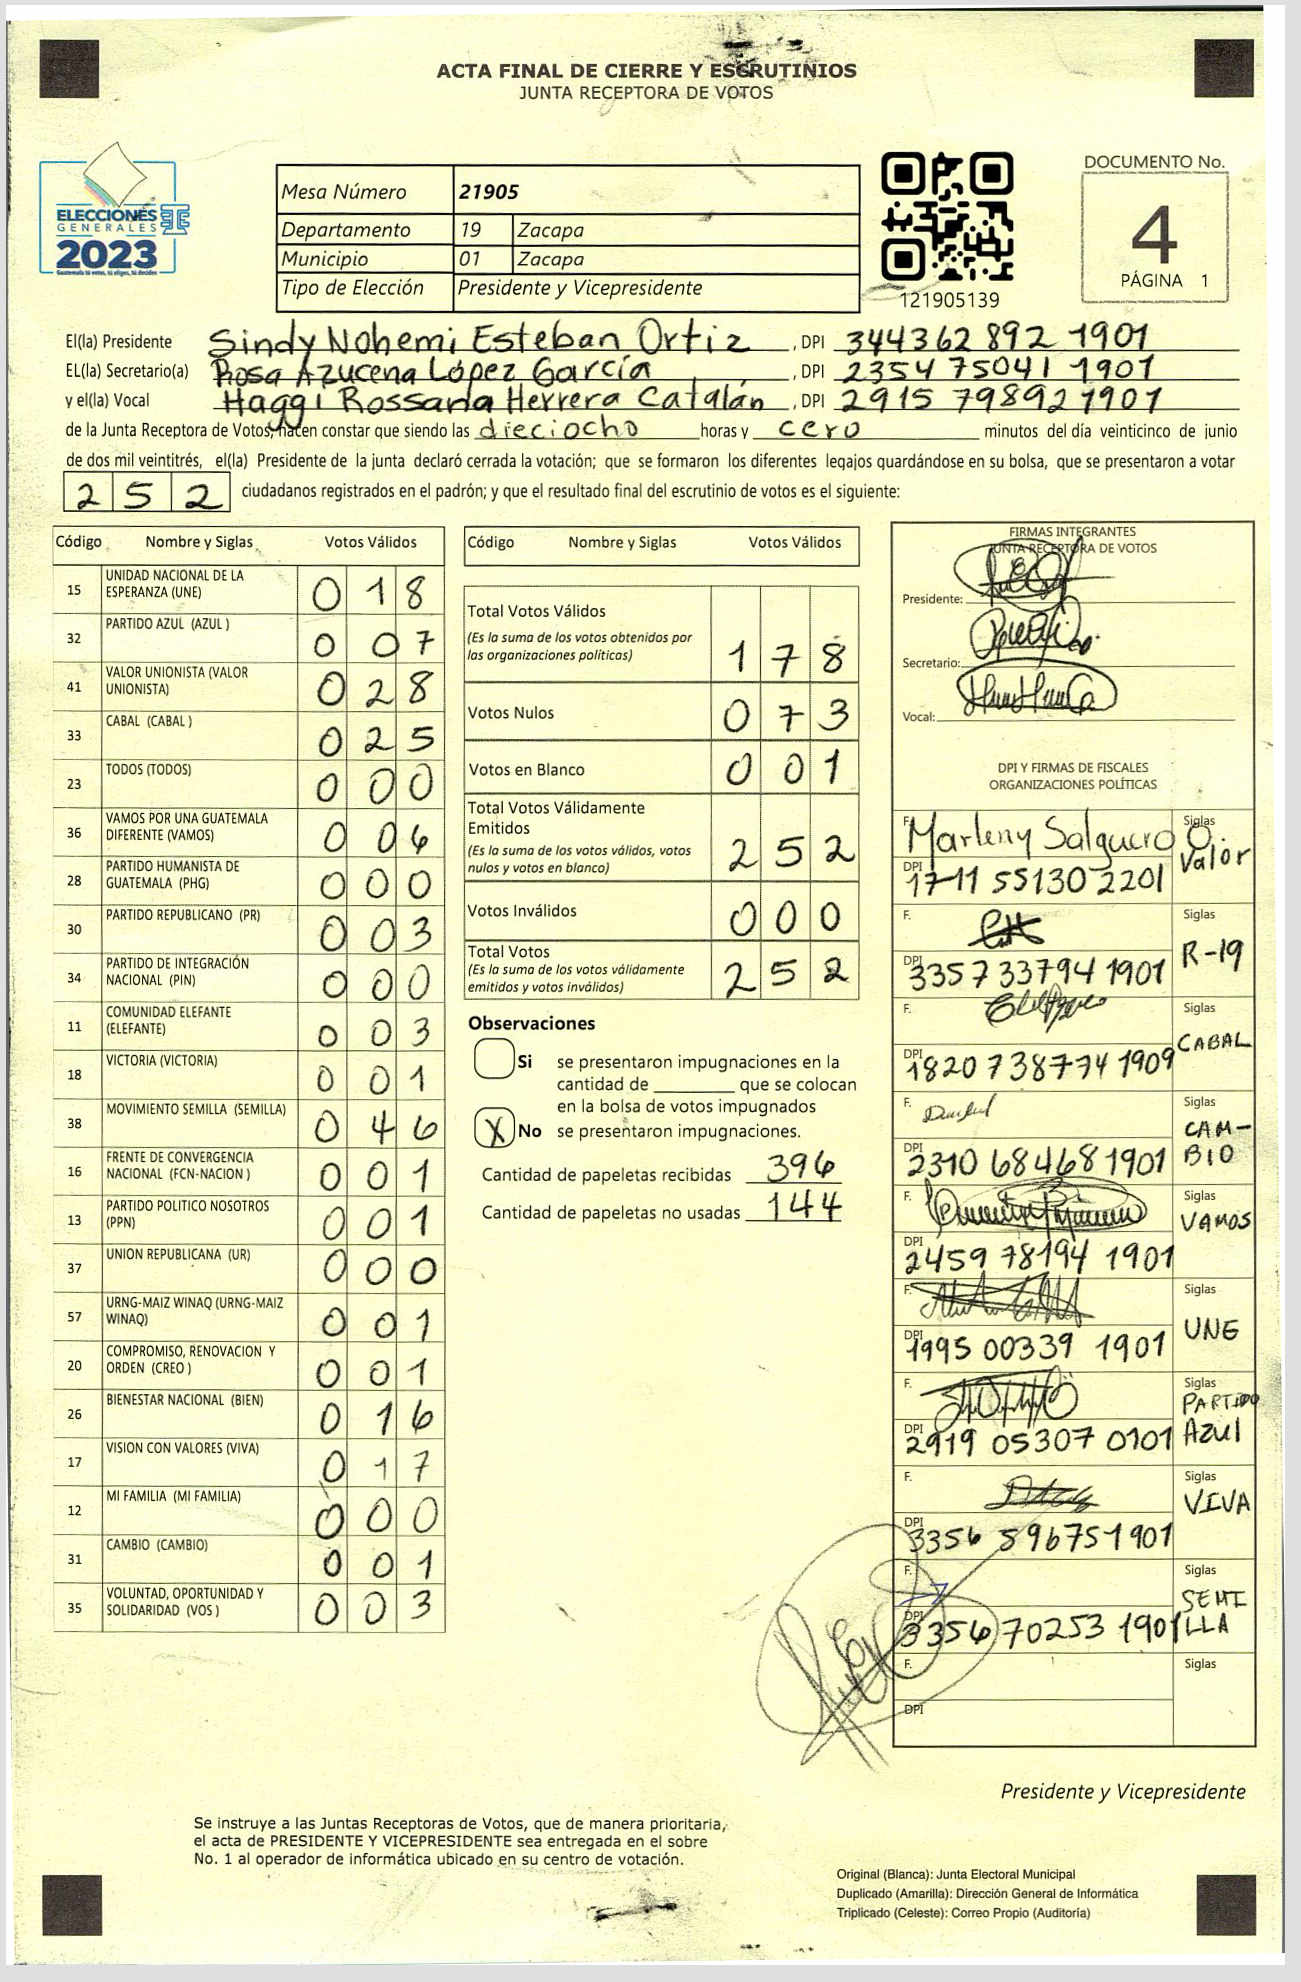 ACTA FINAL DE CIERRE Y ESCRUTINIOS
JUNTA RECEPTORA DE VOTOS
ELECCIONES
GENERALES
2023
Guatemala tú votas, tú eliges, tú decides
Mesa Número 21905
Departamento 19 Zacapa
Municipio 01 Zacapa
Tipo de Elección Presidente y Vicepresidente
121905139
DOCUMENTO No.
4
PÁGINA 1
El(la) Presidente Sindy Nohemi Esteban Ortiz, DPI 344362892 1901
EL(la) Secretario(a) Rosa Azucena López García, DPI 2354 75041 1901
y el(la) Vocal Haggi Rossana Herrera Catalán, DPI 2915 79892 1901
de la Junta Receptora de Votos, hacen constar que siendo las dieciocho horas y cero minutos del día veinticinco de junio
de dos mil veintitrés, el(la) Presidente de la junta declaró cerrada la votación; que se formaron los diferentes legajos guardándose en su bolsa, que se presentaron a votar
252 ciudadanos registrados en el padrón; y que el resultado final del escrutinio de votos es el siguiente:
Código Nombre y Siglas Votos Válidos
15 UNIDAD NACIONAL DE LA
ESPERANZA (UNE) 018
32 PARTIDO AZUL (AZUL ) 007
41 VALOR UNIONISTA (VALOR
UNIONISTA) 028
33 CABAL (CABAL ) 025
23 TODOS (TODOS) 000
36 VAMOS POR UNA GUATEMALA
DIFERENTE (VAMOS) 006
28 PARTIDO HUMANISTA DE
GUATEMALA (PHG) 000
30 PARTIDO REPUBLICANO (PR) 003
34 PARTIDO DE INTEGRACIÓN
NACIONAL (PIN) 000
11 COMUNIDAD ELEFANTE
(ELEFANTE) 003
18 VICTORIA (VICTORIA) 001
38 MOVIMIENTO SEMILLA (SEMILLA) 046
16 FRENTE DE CONVERGENCIA
NACIONAL (FCN-NACION ) 001
13 PARTIDO POLITICO NOSOTROS
(PPN) 001
37 UNION REPUBLICANA (UR) 000
57 URNG-MAIZ WINAQ (URNG-MAIZ
WINAQ) 001
20 COMPROMISO, RENOVACION Y
ORDEN (CREO ) 001
26 BIENESTAR NACIONAL (BIEN) 016
17 VISION CON VALORES (VIVA) 017
12 MI FAMILIA (MI FAMILIA) 000
31 CAMBIO (CAMBIO) 001
35 VOLUNTAD, OPORTUNIDAD Y
SOLIDARIDAD (VOS ) 003
Código Nombre y Siglas Votos Válidos
Total Votos Válidos
(Es la suma de los votos obtenidos por
las organizaciones políticas) 178
Votos Nulos 073
Votos en Blanco 001
Total Votos Válidamente
Emitidos
(Es la suma de los votos válidos, votos
nulos y votos en blanco) 252
Votos Inválidos 000
Total Votos
(Es la suma de los votos válidamente
emitidos y votos inválidos) 252
Observaciones
Si se presentaron impugnaciones en la
cantidad de ________ que se colocan
en la bolsa de votos impugnados
X No se presentaron impugnaciones.
Cantidad de papeletas recibidas 396
Cantidad de papeletas no usadas 144
FIRMAS INTEGRANTES
JUNTA RECEPTORA DE VOTOS
Presidente:
Secretario:
Vocal:
DPI Y FIRMAS DE FISCALES
ORGANIZACIONES POLÍTICAS
F. Marleny Salguero O. Siglas Valor
DPI 1711 55130 2201
F. Siglas R-19
DPI 3357 33794 1901
F. Siglas CABAL
DPI 1820 738774 1909
F. Siglas CAM-
BIO
DPI 2310 68468 1901
F. Siglas VAMOS
DPI 2459 78194 1901
F. Siglas UNE
DPI 1995 00339 1901
F. Siglas PARTIDO
Azul
DPI 2919 05307 0101
F. Siglas VIVA
DPI 3356 59675 1901
F. Siglas SEMI
LLA
DPI 3356 70253 1901
F. Siglas
DPI
Presidente y Vicepresidente
Se instruye a las Juntas Receptoras de Votos, que de manera prioritaria,
el acta de PRESIDENTE Y VICEPRESIDENTE sea entregada en el sobre
No. 1 al operador de informática ubicado en su centro de votación.
Original (Blanca): Junta Electoral Municipal
Duplicado (Amarilla): Dirección General de Informática
Triplicado (Celeste): Correo Propio (Auditoría)